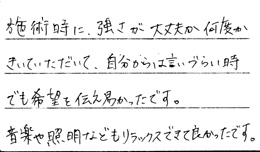 施術時に、強さが大丈夫か何度か
きいていただいて、自分からは言いづらい時
でも希望を伝え易かったです。
音楽や照明などもリラックスできて良かったです。